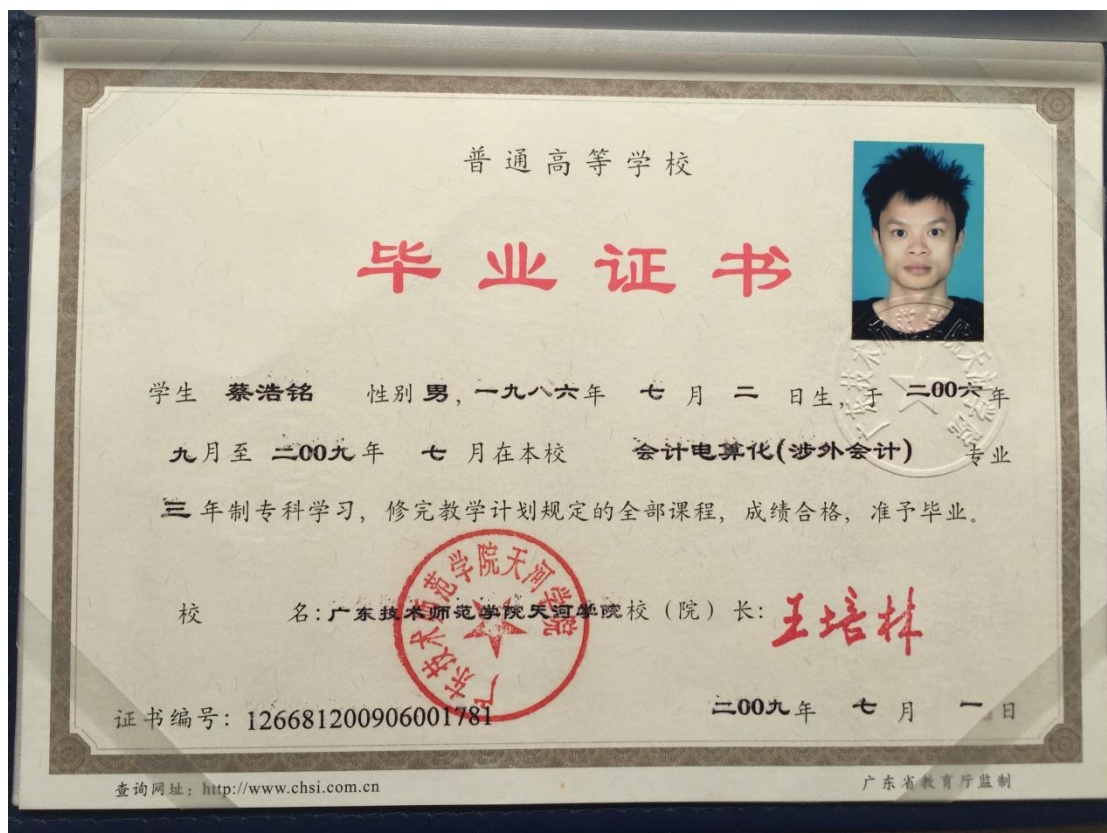 普通高等学校
毕业证书
学生 蔡浩铭 性别 男，一九八六年 七 月 二 日生，于 二00六年
九月至 二00九年 七 月在本校 会计电算化(涉外会计) 专业
三 年制专科学习，修完教学计划规定的全部课程，成绩合格，准予毕业。
校 名：广东技术师范学院天河学院校（院）长：王培林
广东技术师范学院天河学院
广东技术师范学院天河学院
证书编号：126681200906001781
二00九年 七 月 一 日
查询网址：http://www.chsi.com.cn
广东省教育厅监制